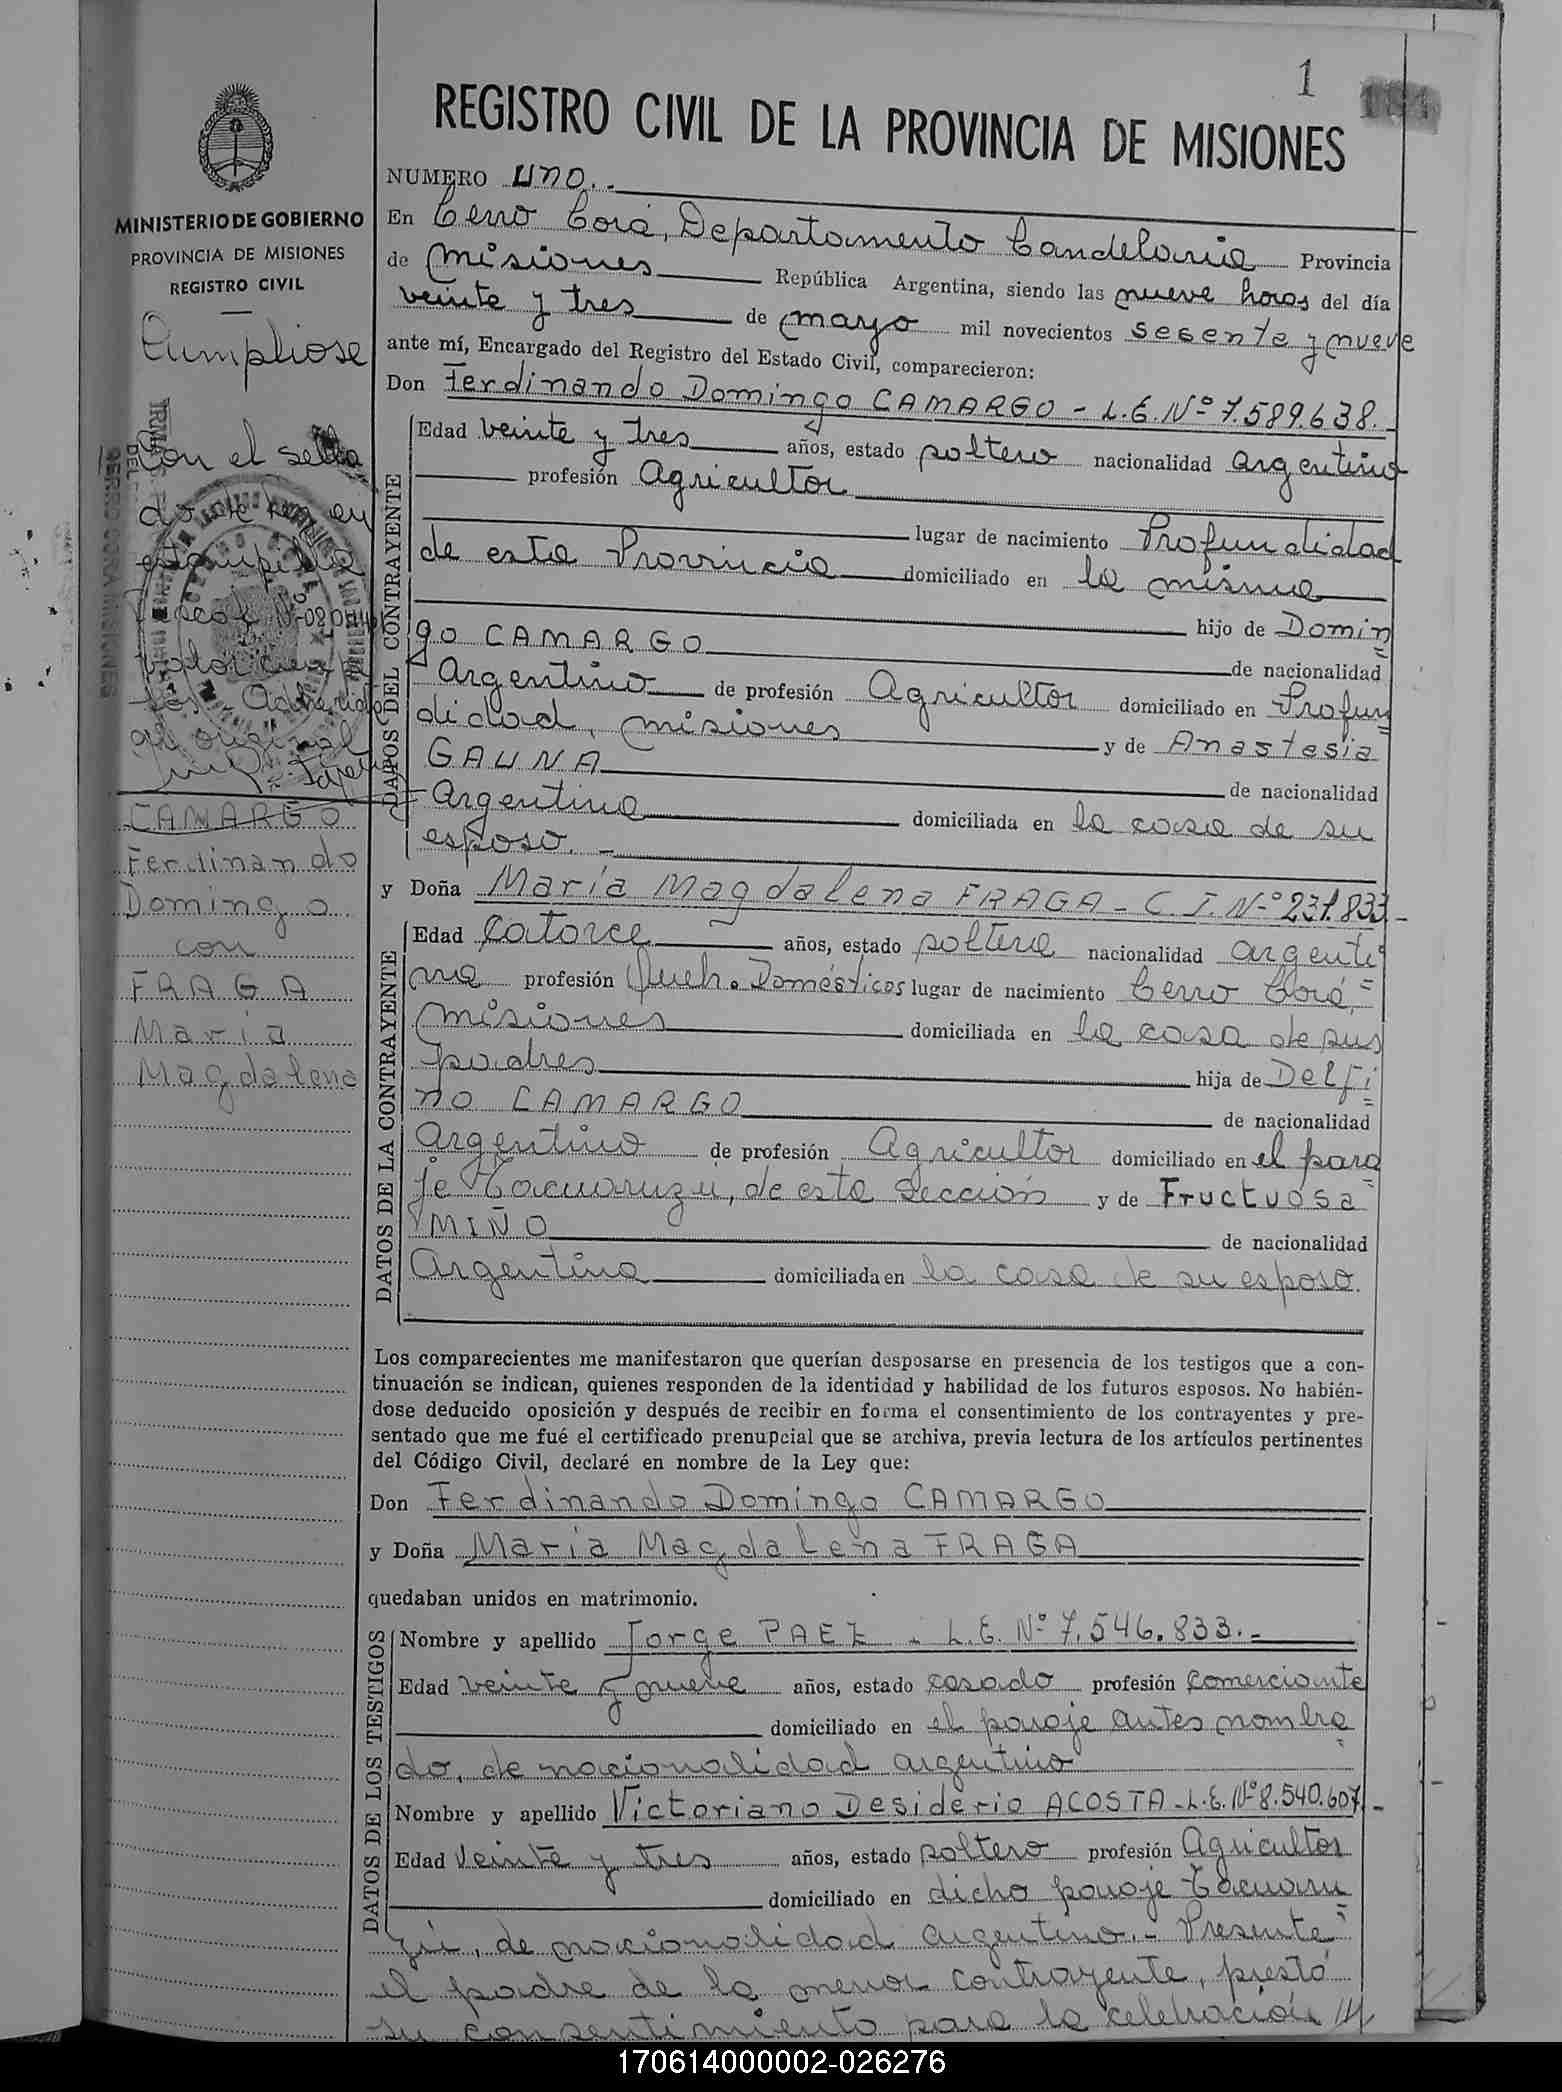 1
REGISTRO CIVIL DE LA PROVINCIA DE MISIONES
MINISTERIO DE GOBIERNO
PROVINCIA DE MISIONES
REGISTRO CIVIL
Cumpliose
con el sella
do
en
estampilla
fiscal Nº
valor
Adherido
al original
CAMARGO
Ferdinando
Domingo
con
FRAGA
María
Magdalena
NUMERO uno.-
En Cerro Corá, Departamento Candelaria Provincia
de Misiones República Argentina, siendo las nueve horas del día
veinte y tres de mayo mil novecientos sesenta y nueve
ante mí, Encargado del Registro del Estado Civil, comparecieron:
Don Ferdinando Domingo CAMARGO - L.E. Nº 7.589.638.-
DATOS DEL CONTRAYENTE
Edad veinte y tres años, estado soltero nacionalidad argentino
profesión Agricultor
lugar de nacimiento Profundidad
de esta Provincia domiciliado en la misma
hijo de Domin=
go CAMARGO de nacionalidad
Argentino de profesión Agricultor domiciliado en Profun=
didad, Misiones y de Anastesia
GAUNA de nacionalidad
Argentina domiciliada en la casa de su
esposo.-
y Doña María Magdalena FRAGA - C.I. Nº 231.833.-
DATOS DE LA CONTRAYENTE
Edad Catorce años, estado soltera nacionalidad argenti=
na profesión Queh. Domésticos lugar de nacimiento Cerro Corá,=
Misiones domiciliada en la casa de sus
padres hija de Delfi=
no CAMARGO de nacionalidad
Argentino de profesión Agricultor domiciliado en el para=
je Tacuaruzú, de esta Sección y de Fructuosa
MIÑO de nacionalidad
Argentina domiciliada en la casa de su esposo.
Los comparecientes me manifestaron que querían desposarse en presencia de los testigos que a con-
tinuación se indican, quienes responden de la identidad y habilidad de los futuros esposos. No habién-
dose deducido oposición y después de recibir en forma el consentimiento de los contrayentes y pre-
sentado que me fué el certificado prenupcial que se archiva, previa lectura de los artículos pertinentes
del Código Civil, declaré en nombre de la Ley que:
Don Ferdinando Domingo CAMARGO
y Doña María Magdalena FRAGA
quedaban unidos en matrimonio.
DATOS DE LOS TESTIGOS
Nombre y apellido Jorge PAEZ - L.E. Nº 7.546.833.-
Edad veinte y nueve años, estado casado profesión Comerciante
domiciliado en el paraje antes nombra=
do, de nacionalidad argentino
Nombre y apellido Victoriano Desiderio ACOSTA - L.E. Nº 8.540.607.-
Edad Veinte y tres años, estado soltero profesión Agricultor
domiciliado en dicho paraje Tacuaru=
zú, de nacionalidad argentino.- Presente
el padre de la menor contrayente, prestó
su consentimiento para la celebración ///
170614000002-026276